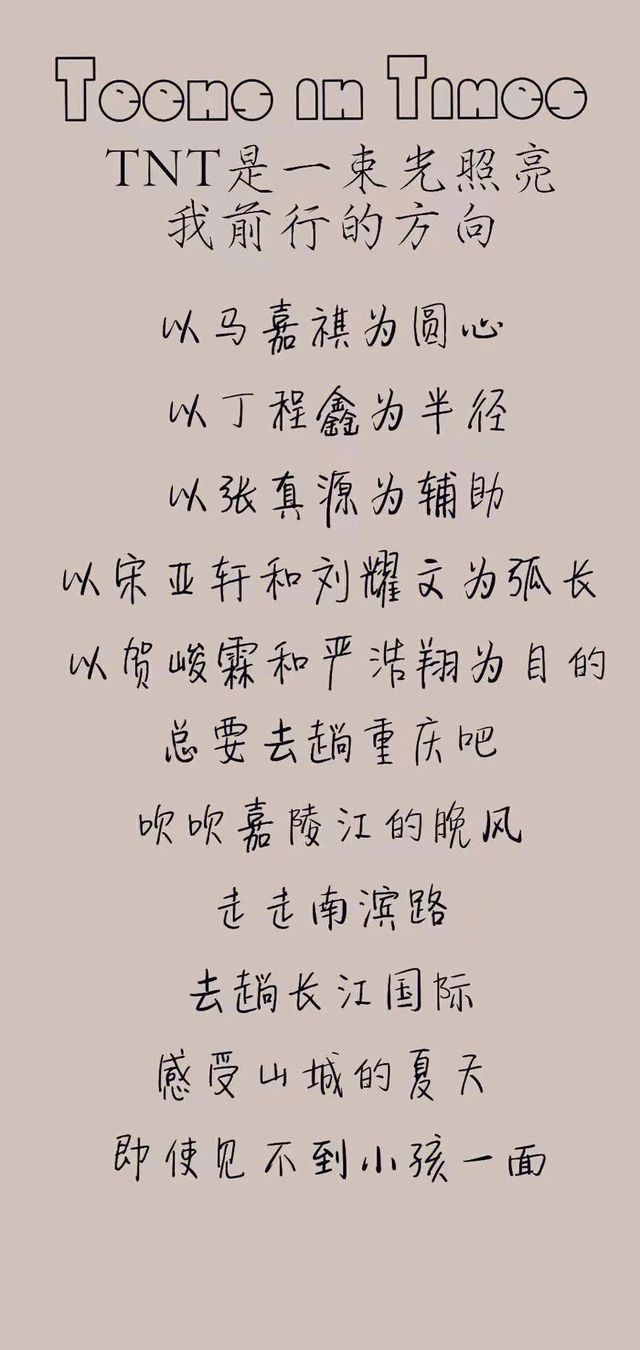 Teens in Times
TNT是一束光照亮
我前行的方向
以马嘉祺为圆心
以丁程鑫为半径
以张真源为辅助
以宋亚轩和刘耀文为弧长
以贺峻霖和严浩翔为目的
总要去趟重庆吧
吹吹嘉陵江的晚风
走走南滨路
去趟长江国际
感受山城的夏天
即使见不到小孩一面